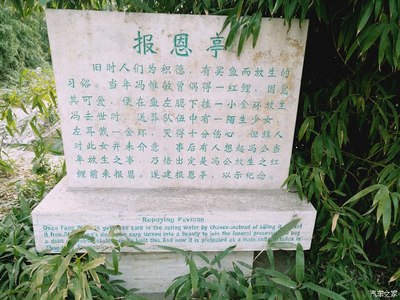 报恩亭
旧时人们为积德，有买鱼而放生的
习俗。当年冯惟敏曾偶得一红鲤，因见
其可爱，便在鱼左腮下挂一小金环放生
冯去世时，送葬队伍中有一陌生少女，
左耳戴一金环，哭得十分伤心，但族人
对此女并未介意。事后有人想起冯公当
年放生之事，乃悟出定是冯公放生之红
鲤前来报恩，遂建报恩亭，以示纪念。
Repaying Pavilion
Once Feng Weimin
carp in the spring water by chance instead of killing
it free
carp turned into a beauty to join the funeral procession
pay
a debt
built this. And now it is protected as a main culture relics in
汽车之家